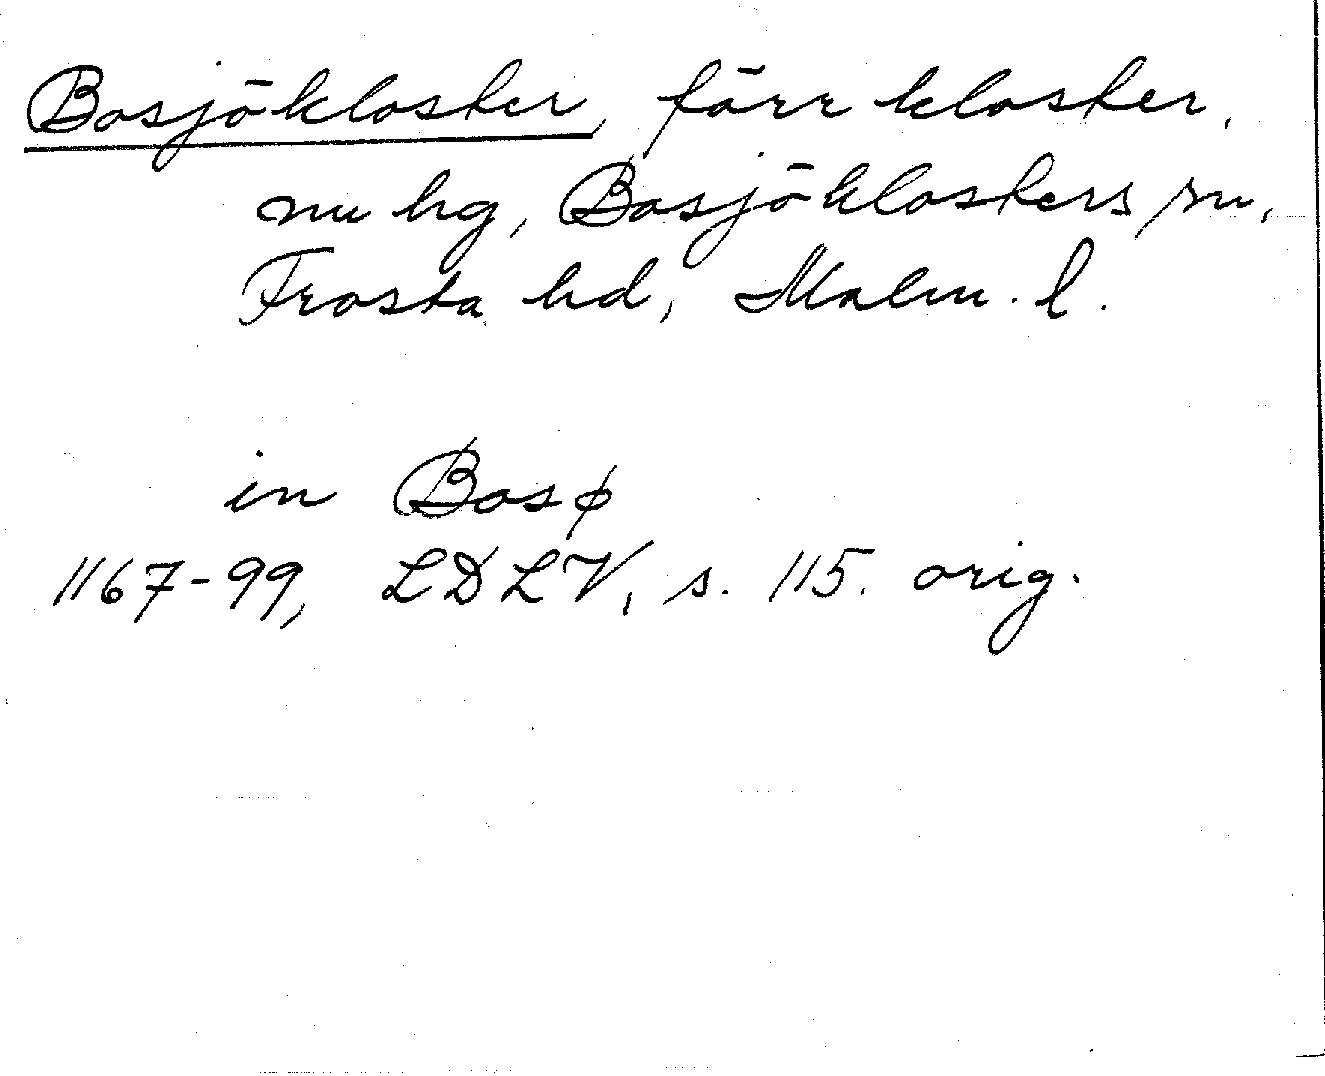 Bosjökloster, förr kloster,
nu hg, Bosjöklosters sn,
Frosta hd, Malm. l.
in Bosø
1167-99, LDLV, s. 115. orig.